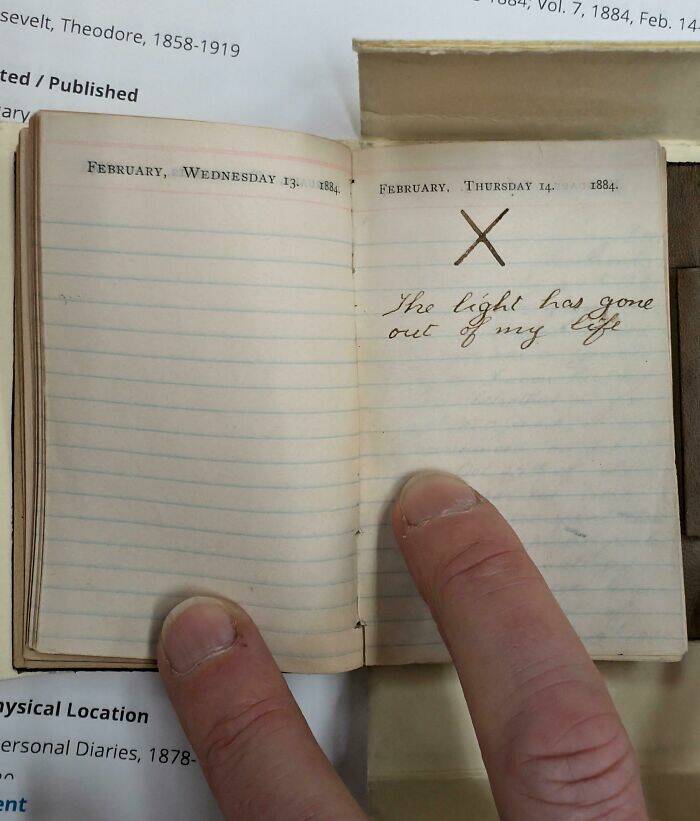 sevelt, Theodore, 1858-1919
1884; Vol. 7, 1884, Feb. 14-
ted / Published
ary
FEBRUARY, WEDNESDAY 13. 1884.
FEBRUARY, THURSDAY 14. 1884.
X
The light has gone
out of my life
ysical Location
ersonal Diaries, 1878-
ent